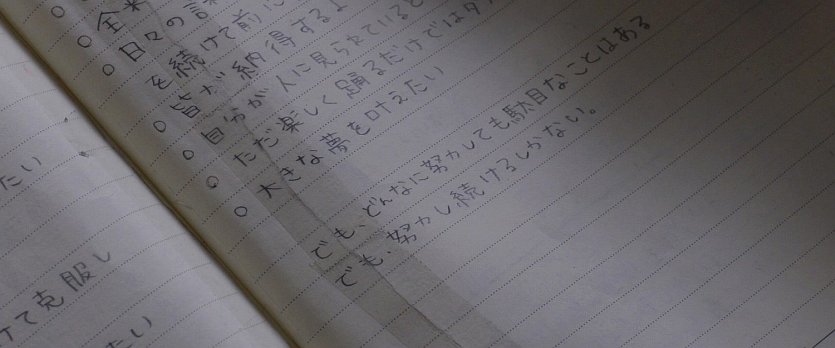 たい
けて克服し
たい
○
○ 全米
○ 日々の
を続けて前に
○ 皆が納得するよ
○ 自分が人に見られていると
○ ただ楽しく踊るだけではダ
○ 大きな夢を叶えたい
でも、どんなに努力しても駄目なことはある
でも努力し続けるしかない。